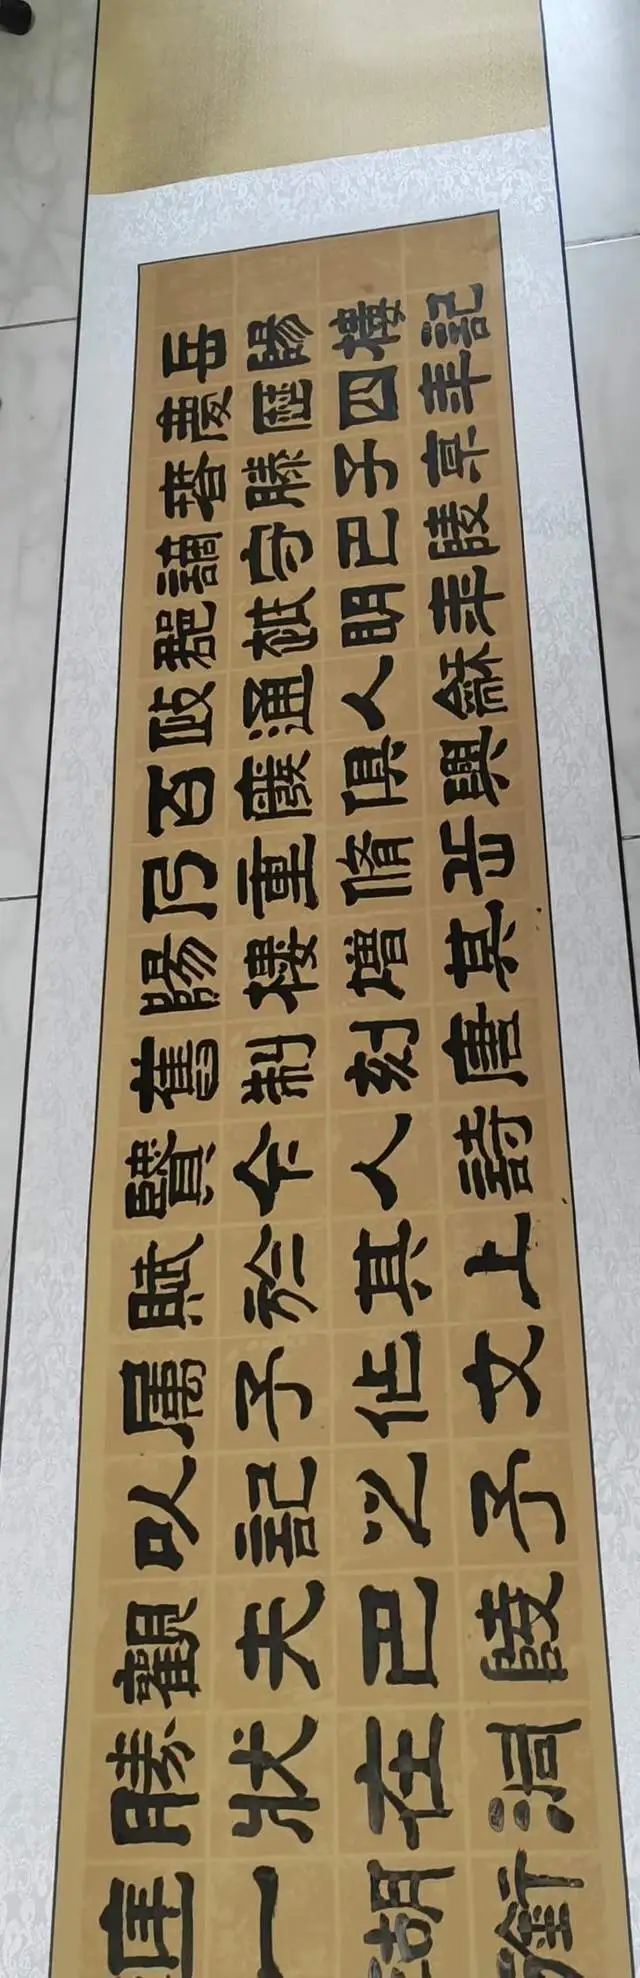 岳陽樓記
慶歷四年
春滕子京
謫守巴陵
郡越明年
政通人和
百廢俱興
乃重脩岳
陽樓增其
舊制刻唐
賢今人詩
賦於其上
屬予作文
以記之予
觀夫巴陵
勝狀在洞
庭一湖銜